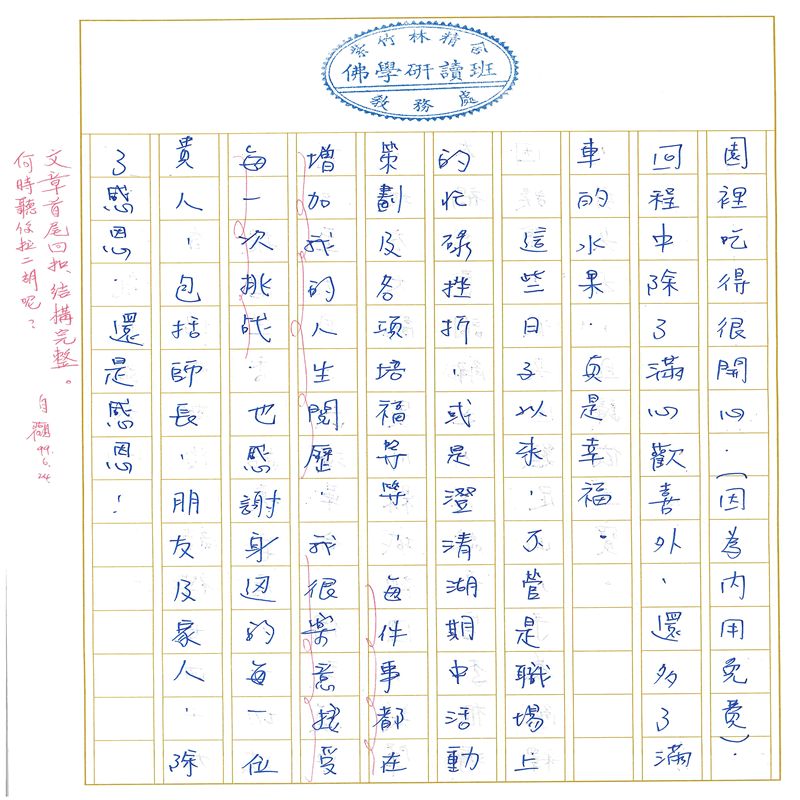 紫竹林精舍
佛學研讀班
教務處
園裡吃得很開心.(因為內用免費).
回程中除了滿心歡喜外、還多了滿
車的水果.真是幸福
這些日子以來,不管是職場上
的忙碌挫折,或是澄清湖期中活動
策劃及各項培福等等,每件事都在
增加我的人生閱歷,我很樂意接受
每一次挑戰.也感謝身边的每一位
貴人,包括師長,朋友及家人,除
了感恩.還是感恩!
文章首尾回扣、結構完整。
何時聽你拉二胡呢?
自觀 99.6.24.